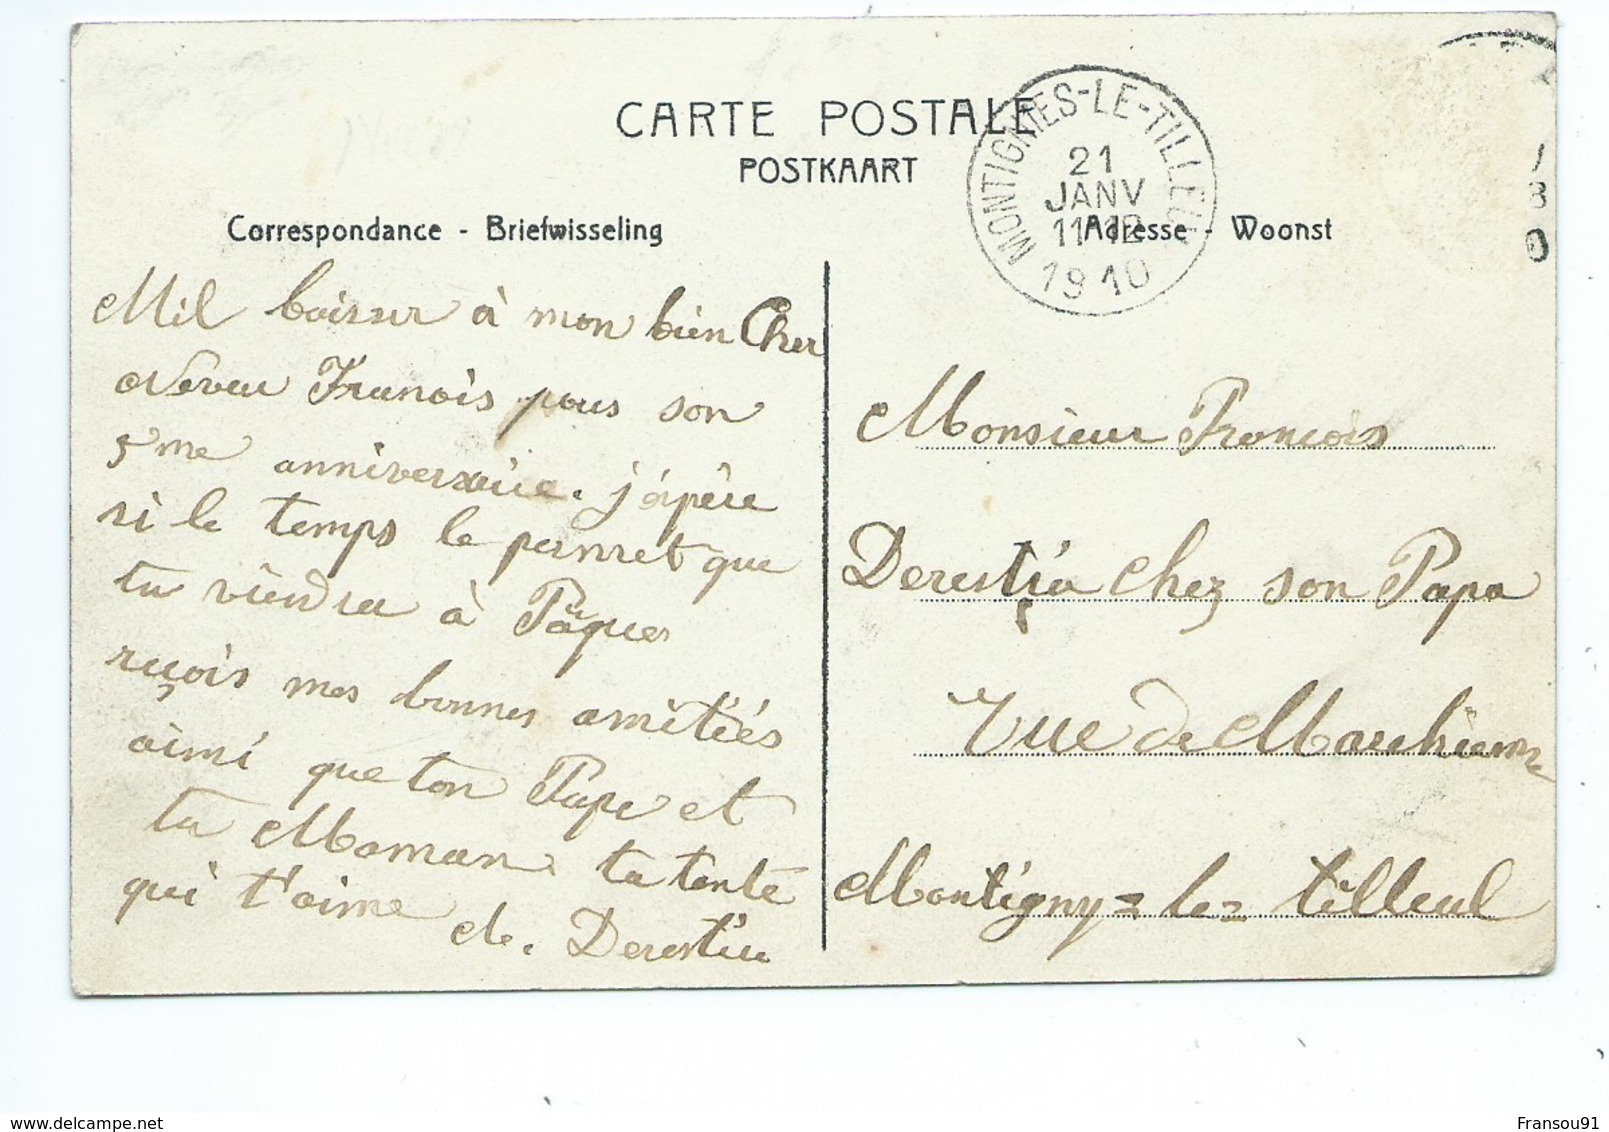 CARTE POSTALE
POSTKAART
MONTIGNIES-LE-TILLEUL
21
JANV
11-12
1910
Correspondance - Briefwisseling
Adresse - Woonst
Mil baisser à mon bien Cher
Neveu Franois pour son
5me anniversaire. j'éspère
si le temps le permet que
tu viendra à Pâques
reçois mes bonnes amitiés
aimi que ton Papa et
ta Maman ta tante
qui t'aime
de. Derestia
Monsieur Francois
Derestia chez son Papa
rue de Marchienne
Montigny=le= tilleul
delcampe.net
Fransou91